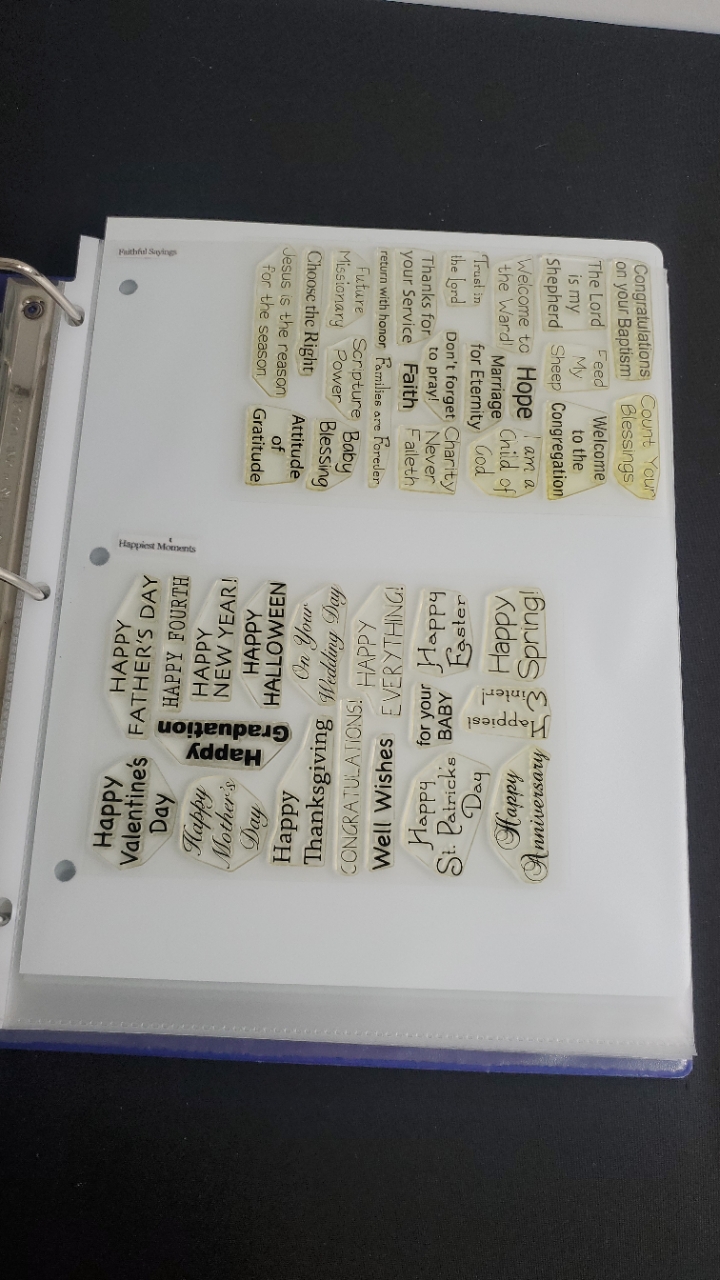 Faithful Sayings
Congratulations
on your Baptism!
Count Your
Blessings
The Lord
is my
Shepherd
Feed
My
Sheep
Welcome
to the
Congregation
Welcome to
the Ward!
Hope
I am a
Child of
God
Marriage
for Eternity
Trust in
the Lord
Don't forget
to pray!
Charity
Never
Faileth
Thanks for
your Service
Faith
return with honor
Families are Forever
Future
Missionary
Scripture
Power
Baby
Blessing
Choose the Right
Attitude
of
Gratitude
Jesus is the reason
for the season
Happiest Moments
HAPPY
FATHER'S DAY
Happy
Valentine's
Day
HAPPY FOURTH
HAPPY
NEW YEAR!
Happy
Graduation
Happy
Mother's
Day
HAPPY
HALLOWEEN
Happy
Thanksgiving
On Your
Wedding Day
CONGRATULATIONS!
HAPPY
EVERYTHING!
Well Wishes
Happy
Easter
for your
BABY
Happy
St. Patrick's
Day
Happiest
Winter!
Happy
Spring!
Happy
Anniversary